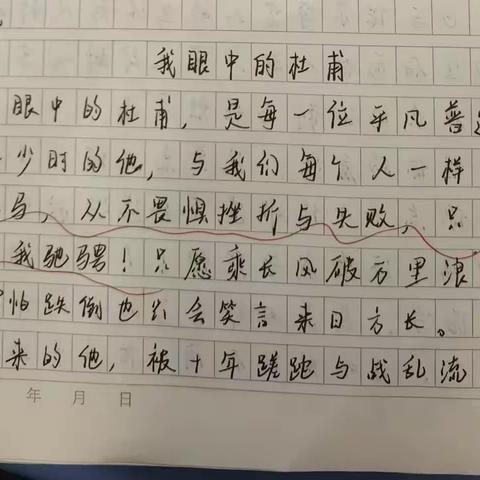 我眼中的杜甫
眼中的杜甫，是每一位平凡普
少时的他，与我们每个人一样
马，从不畏惧挫折与失败，只
我驰骋！只愿乘长风破万里浪
怕跌倒也只会笑言来日方长。
来的他，被十年蹉跎与战乱流
年 月 日